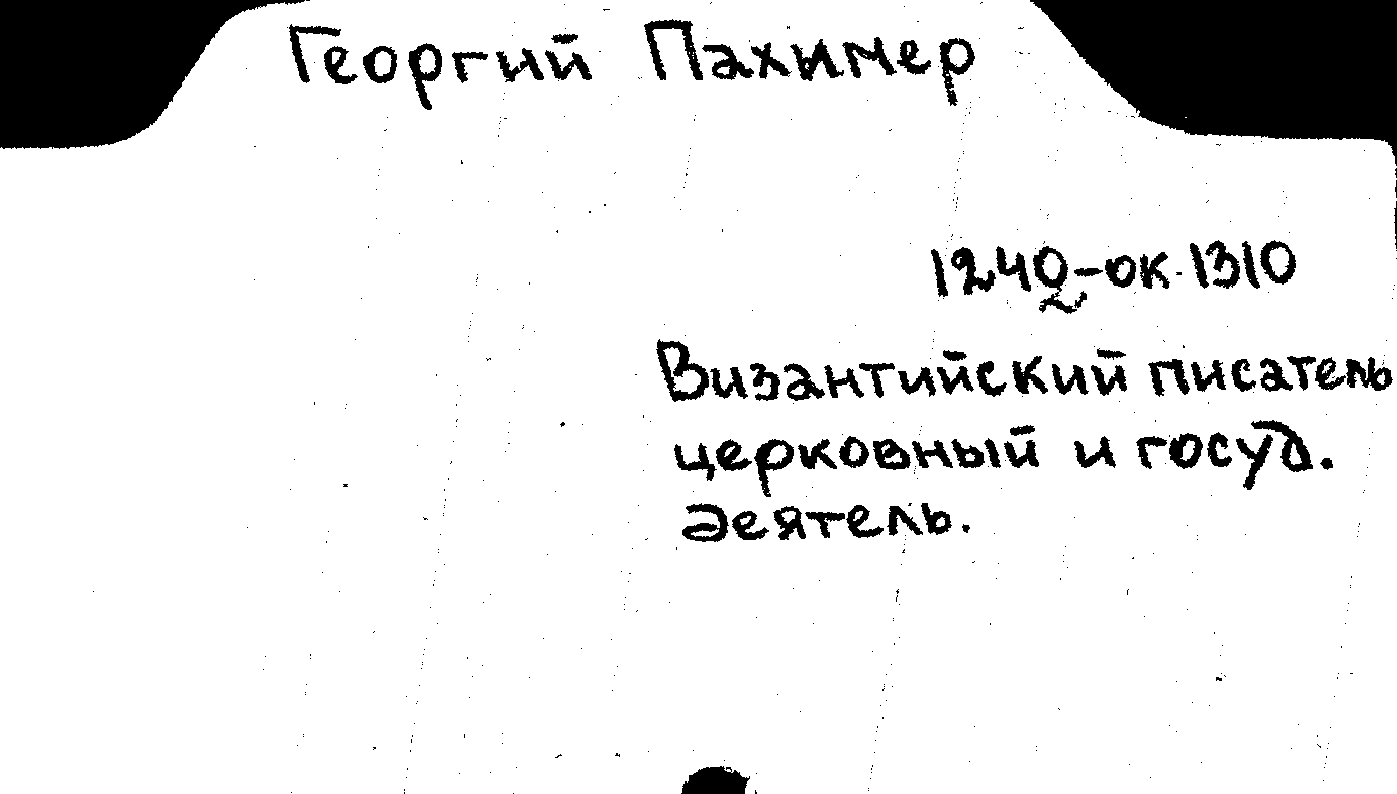 Георгий Пахимер
1240-ок.1310
Византийский писатель
церковный и госуд.
деятель.